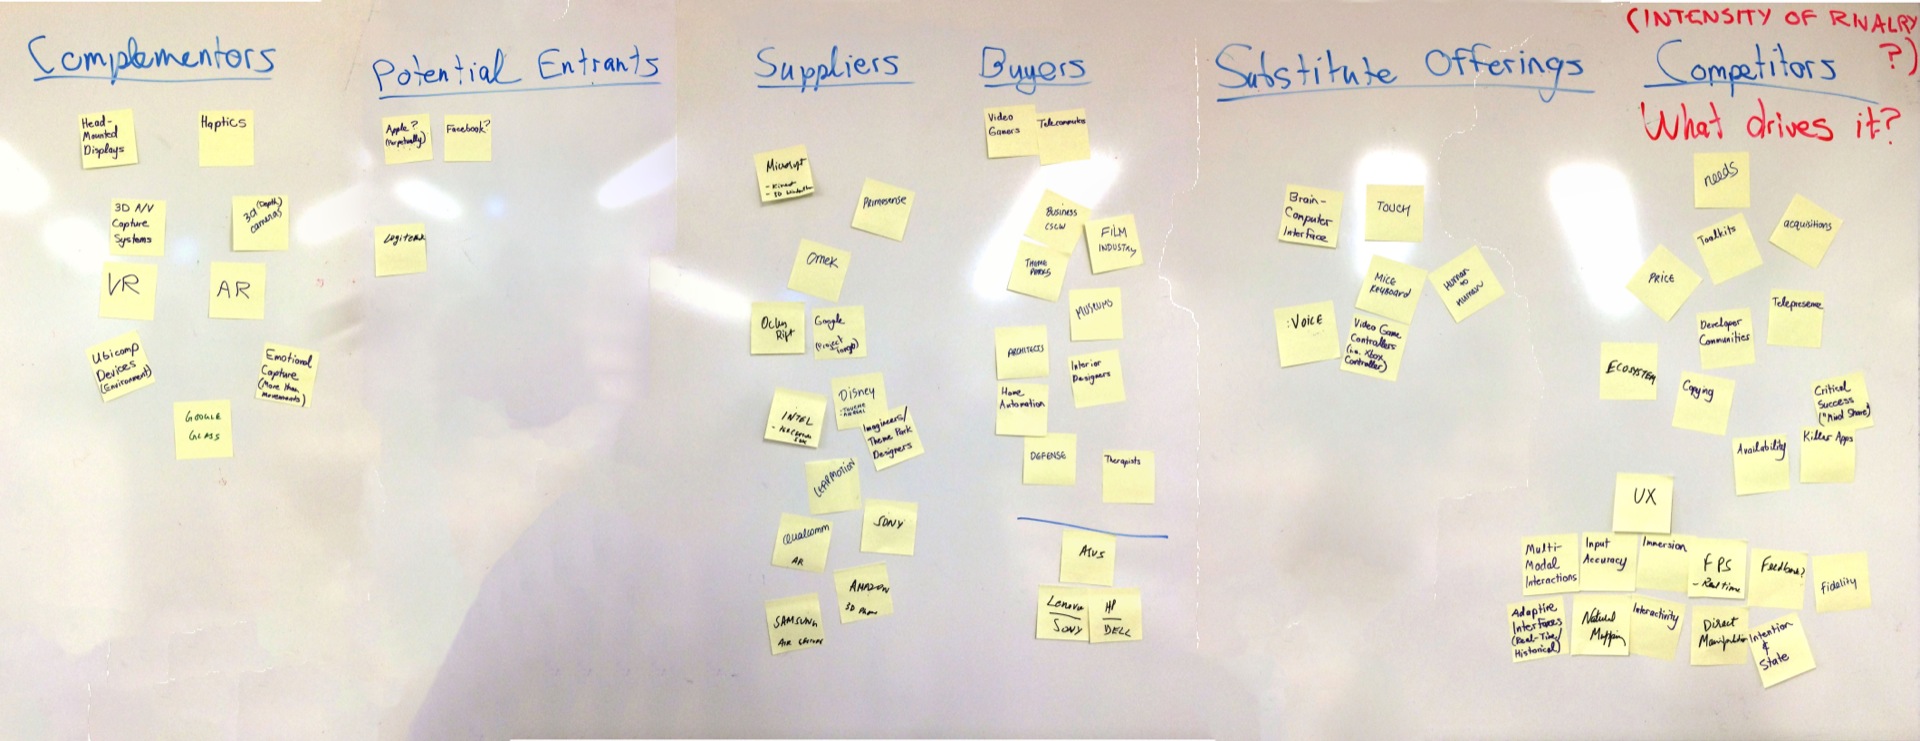 Complementors
Head-
Mounted
Displays
Haptics
3D A/V
Capture
Systems
3d (Depth)
cameras
VR
AR
Ubicomp
Devices
(Environment)
Emotional
Capture
(More than
movements)
GOOGLE
GLASS
Potential Entrants
Apple?
(Perpetually)
Facebook?
Logitech
Suppliers
Microsoft
- Kinect
Primesense
Omek
Oculus
Rift
Google
(Project
Tango)
Disney
INTEL
Imagineers/
Theme Park
Designers
LEAPMOTION
SONY
Qualcomm
AR
AMAZON
3D Phone
SAMSUNG
AIR GESTURE
Buyers
Video
Gamers
Telecommuters
Business
CSCW
FILM
INDUSTRY
THEME
PARKS
MUSEUMS
ARCHITECTS
Interior
Designers
Home
Automation
DEFENSE
Therapists
ASUS
Lenovo
SONY
HP
DELL
Substitute Offerings
Brain-
Computer
Interface
TOUCH
MICE
KEYBOARD
Human
to
Human
VOICE
Video Game
Controllers
(i.e. Xbox
Controller)
(INTENSITY OF RIVALRY
?)
Competitors
What drives it?
needs
Toolkits
acquisitions
PRICE
Telepresence
Developer
Communities
ECOSYSTEM
Copying
Critical
Success
("Mind Share)
Availability
Killer Apps
UX
Multi-
Modal
Interactions
Input
Accuracy
Immersion
FPS
- Real time
Feedback?
Fidelity
Adaptive
Interfaces
(Real-Time/
Historical)
Natural
Mapping
Interactivity
Direct
Manipulation
Intention
&
State